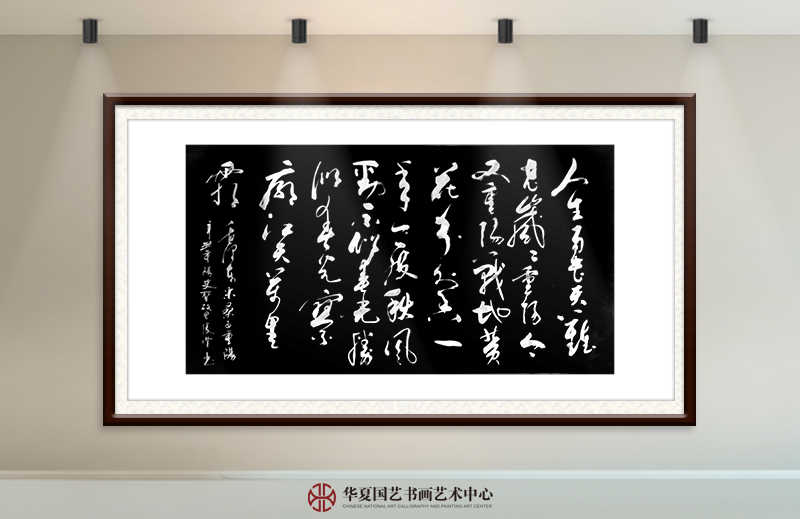 人生易老天難
老歲〻重陽今
又重陽戰地黃
花分外香一
年一度秋風
勁不似春光勝
似春光寥
廓江天萬里
霜
毛澤東采桑子重陽
华夏国艺书画艺术中心
CHINESE NATIONAL ART CALLIGRAPHY AND PAINTING ART CENTER